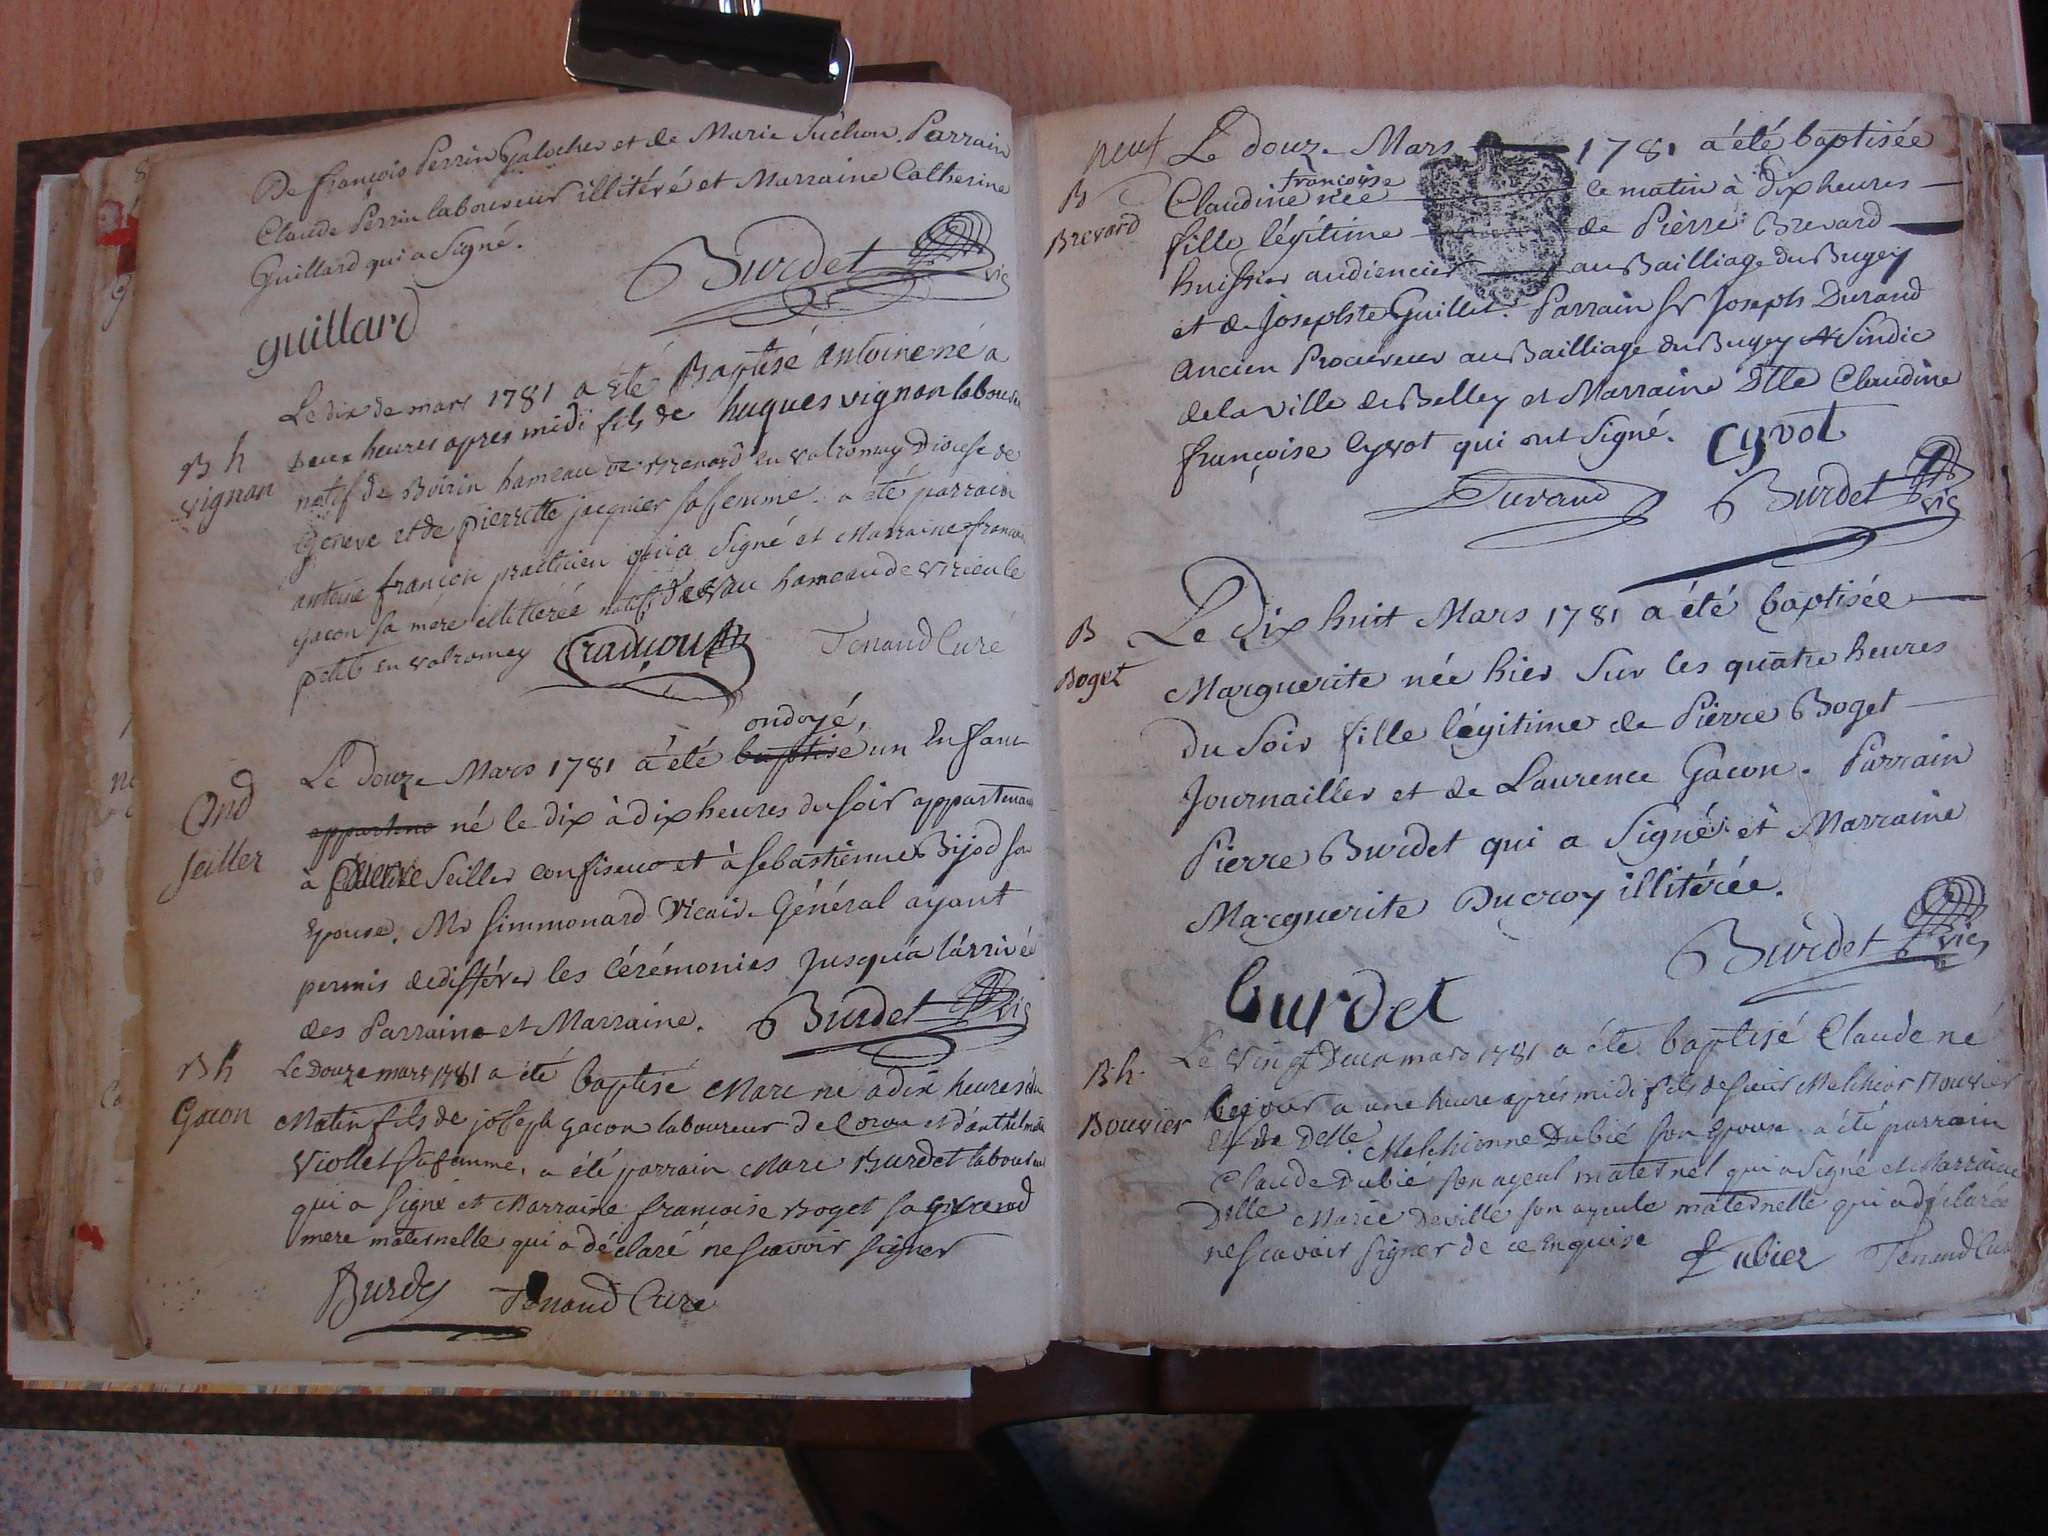 De françois Perrin Galocher et de Marie Suchon. Parrain
Claude Perrin laboureur illitéré et Marraine Catherine
Guillard qui a Signé.
Burdet vic
guillard
B h
vignan
Le dix de mars 1781 a été Baptisé antoine né a
Deux heures apres midi fils de hugues vignan laboureur
natif de Boirin hameau de Brenard en valromey Diocese de
Geneve et de pierrette jacquier sa femme. a été parrain
antoine françon practicien qui a Signé et Marraine
gacon sa mere illitterée hameau de virieu le
petit en valromey françon Tenand Curé
Ond
Seiller
Le Douze Mars 1781 a été baptisé ondoyé, un Enfant
appartena né le dix à dix heures du soir appartenant
à Seiller confiseur et à Sebastienne Bijod son
Epouse. Mr Simmonard Vicaire Général ayant
permis de différer les cérémonies jusqu'à l'arrivée
des Parraine et Marraine. Burdet vic
B h
Gacon
Le Douze mars 1781 a été baptisé Marc né a dix heures du
Matin fils de joseph gacon laboureur de Coron et d'anthelmette
Viollet sa femme, a été parrain Marc Burdet laboureur
qui a signé et Marraine françoise Boget sa grand
mere maternelle qui a déclaré ne scavoir signer
Burdet Tenand Curé
neuf
B
Brevard
Le douze Mars 1781 a été baptisée
Claudine françoise née ce matin à Dix heures
fille légitime de Pierre Brevard
huissier audiencier au Bailliage du Bugey
et de Josephte Guillet. Parrain Sr Joseph Durand
ancien Procureur au Bailliage du Bugey & Sindic
de la ville de Belley et Marraine Dlle Claudine
françoise Cyvot qui ont Signé. Cyvot
Durand Burdet vic
B
Boget
Le Dix huit Mars 1781 a été baptisée
Marguerite née hier Sur les quatre heures
du Soir fille légitime de Pierre Boget
Journaillier et de Laurence Gacon. Parrain
Pierre Burdet qui a Signé et Marraine
Marguerite Ducroy illitérée.
Burdet vic
burdet
B. h.
Bouvier
Le vingt Deux mars 1781 a été baptisé Claude né
ce jour a une heure après midi fils de sieur Melchior Bouvier
et de Delle. Melchionne Dubié son Epouse. a été parrain
Claude Dubié son ayeul maternel qui a Signé et Marraine
Delle Marie Deville son ayeule maternelle qui a déclarée
ne scavoir signer de ce Enquise Dubiez Tenand Curé